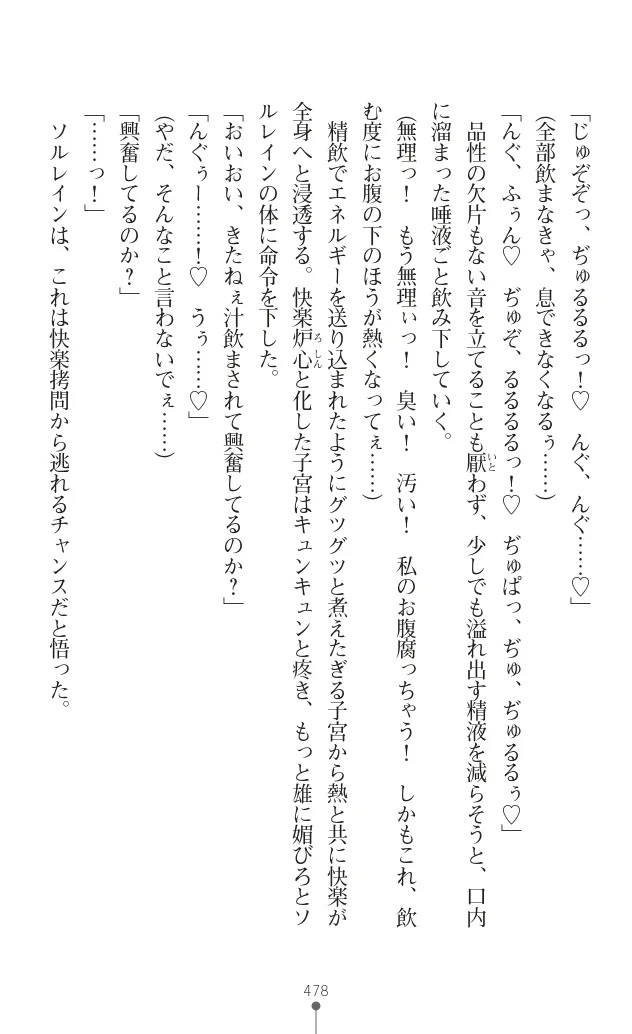 「じゅぞぞっ、ぢゅるるるっ！♡　んぐ、んぐ……♡」
（全部飲まなきゃ、息できなくなるぅ……）
「んぐ、ふぅん♡　ぢゅぞ、るるるるっ！♡　ぢゅぱっ、ぢゅ、ぢゅるるぅ♡」
　品性の欠片もない音を立てることも厭わず、少しでも溢れ出す精液を減らそうと、口内
に溜まった唾液ごと飲み下していく。
（無理っ！　もう無理ぃっ！　臭い！　汚い！　私のお腹腐っちゃう！　しかもこれ、飲
む度にお腹の下のほうが熱くなってぇ……）
　精飲でエネルギーを送り込まれたようにグツグツと煮えたぎる子宮から熱と共に快楽が
全身へと浸透する。快楽炉心と化した子宮はキュンキュンと疼き、もっと雄に媚びろとソ
ルレインの体に命令を下した。
「おいおい、きたねぇ汁飲まされて興奮してるのか？」
「んぐぅー……！♡　うぅ……♡」
（やだ、そんなこと言わないでぇ……）
「興奮してるのか？」
「……っ！」
　ソルレインは、これは快楽拷問から逃れるチャンスだと悟った。
478